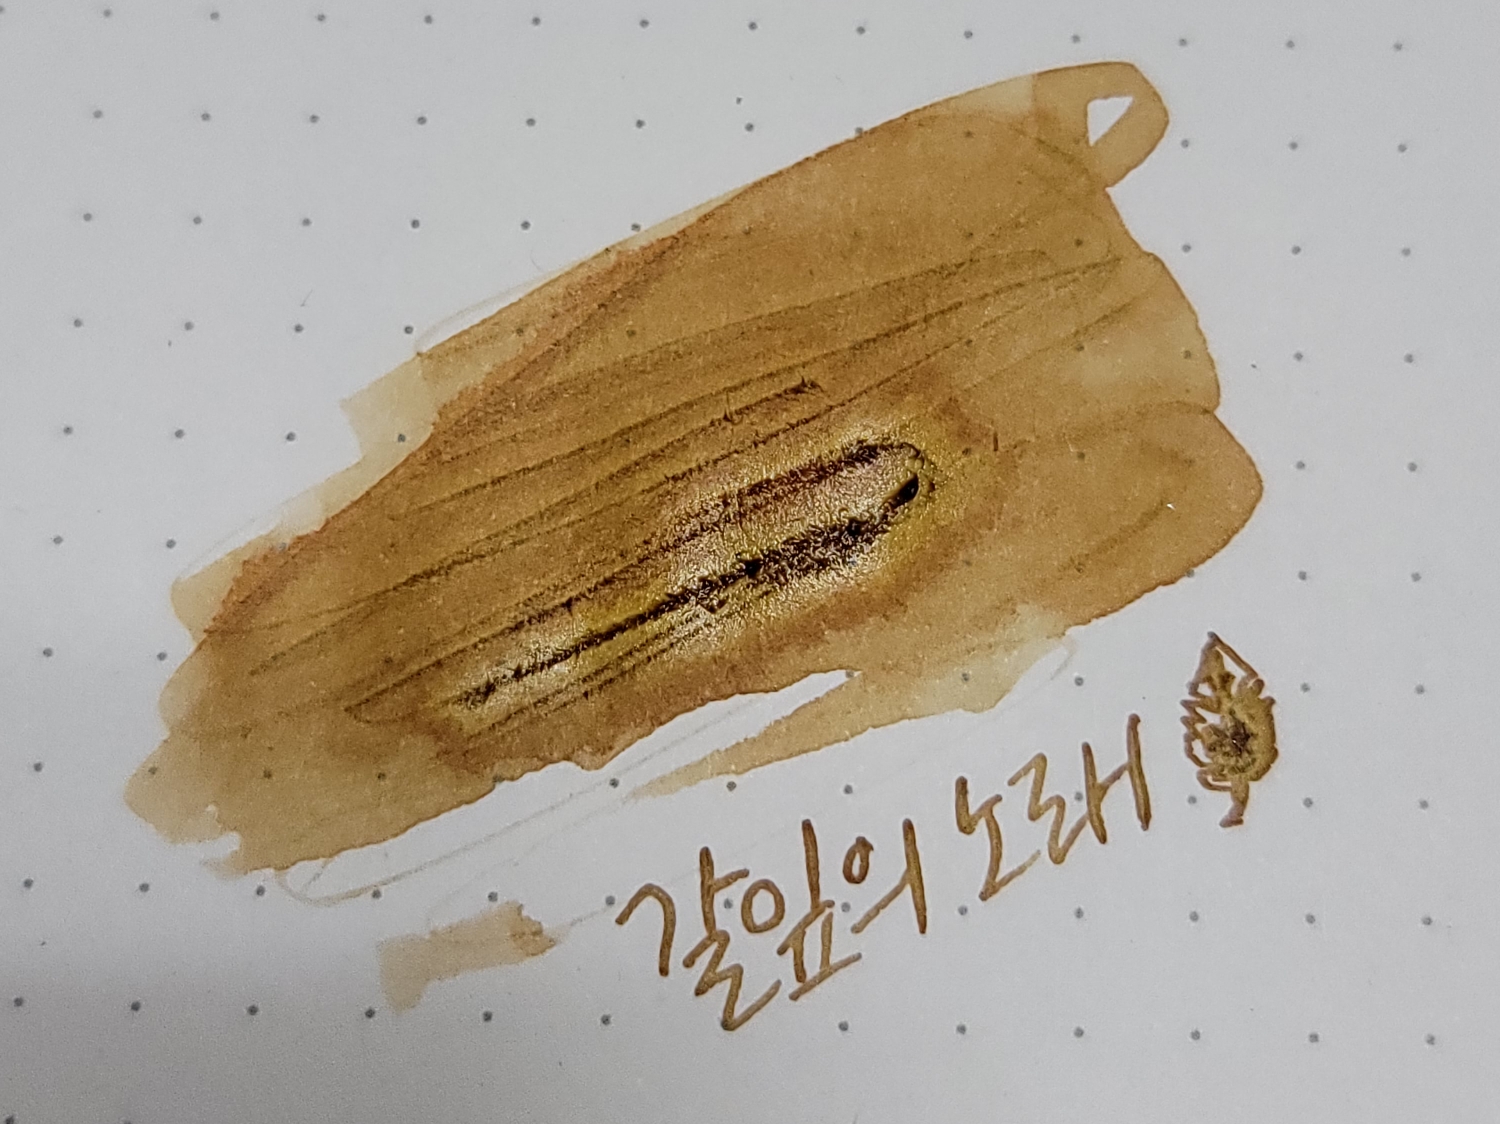 갈잎의 노래